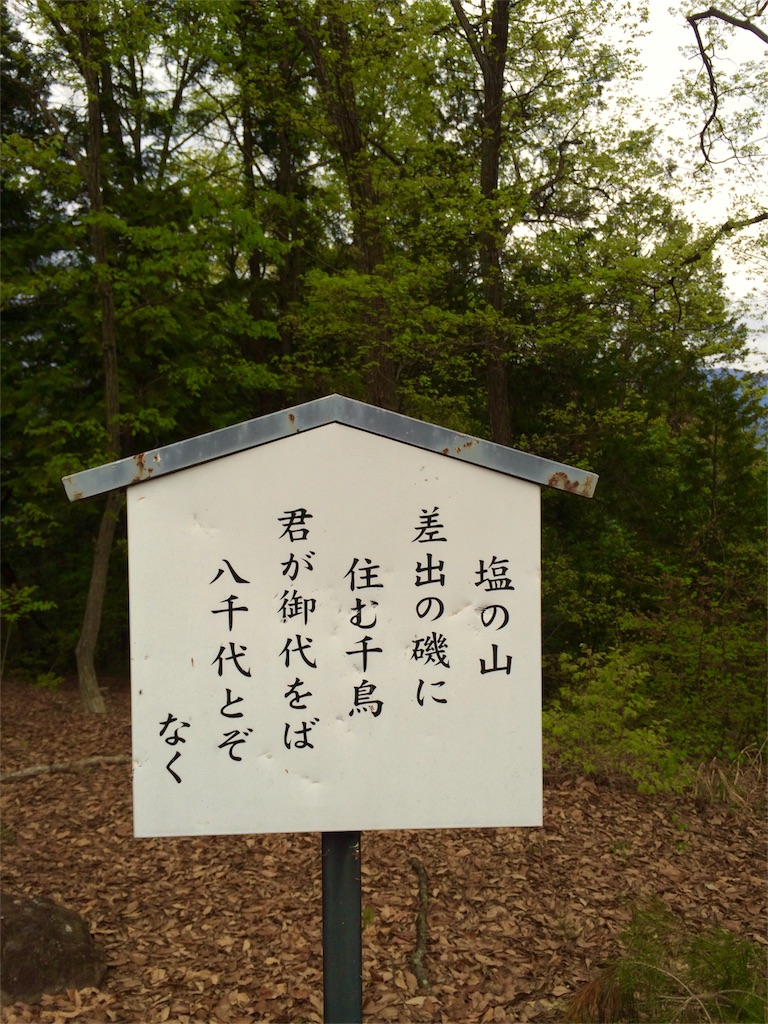 塩の山
差出の磯に
住む千鳥
君が御代をば
八千代とぞ
なく